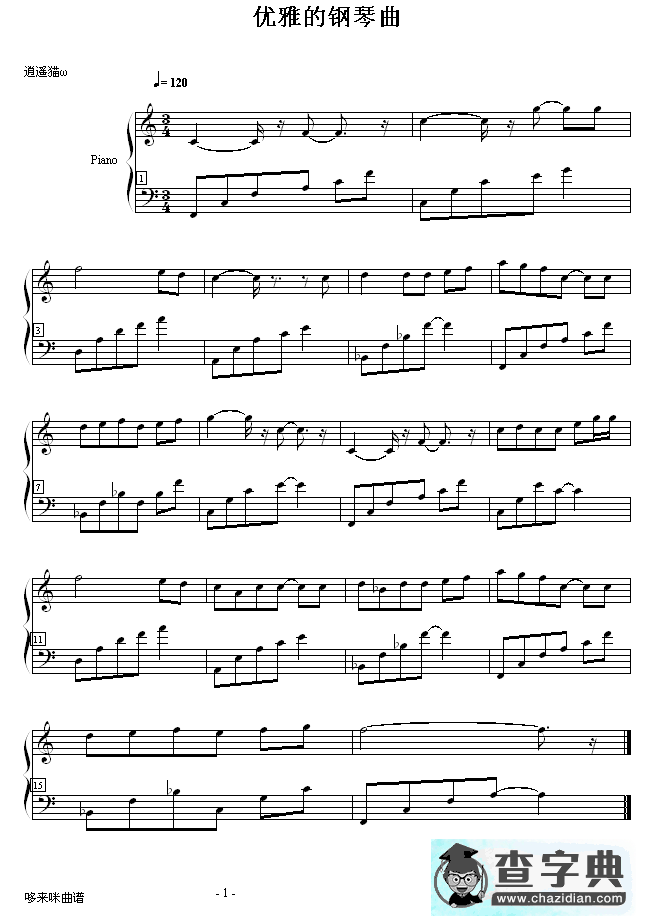 优雅的钢琴曲
逍遥猫ω
= 120
3
4
3
4
Piano
1
3
7
11
15
哆来咪曲谱
- 1 -
查字典
www.chazidian.com